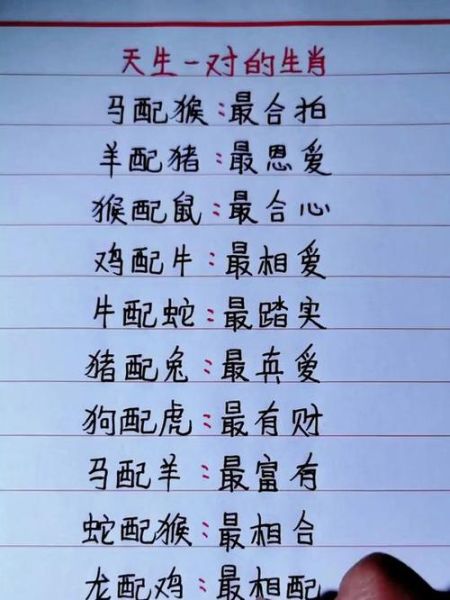 天生一对的生肖
马配猴:最合拍
羊配猪:最恩爱
猴配鼠:最合心
鸡配牛:最相爱
牛配蛇:最踏实
猪配兔:最真爱
狗配虎:最有财
马配羊:最富有
蛇配猴:最相合
龙配鸡:最相配